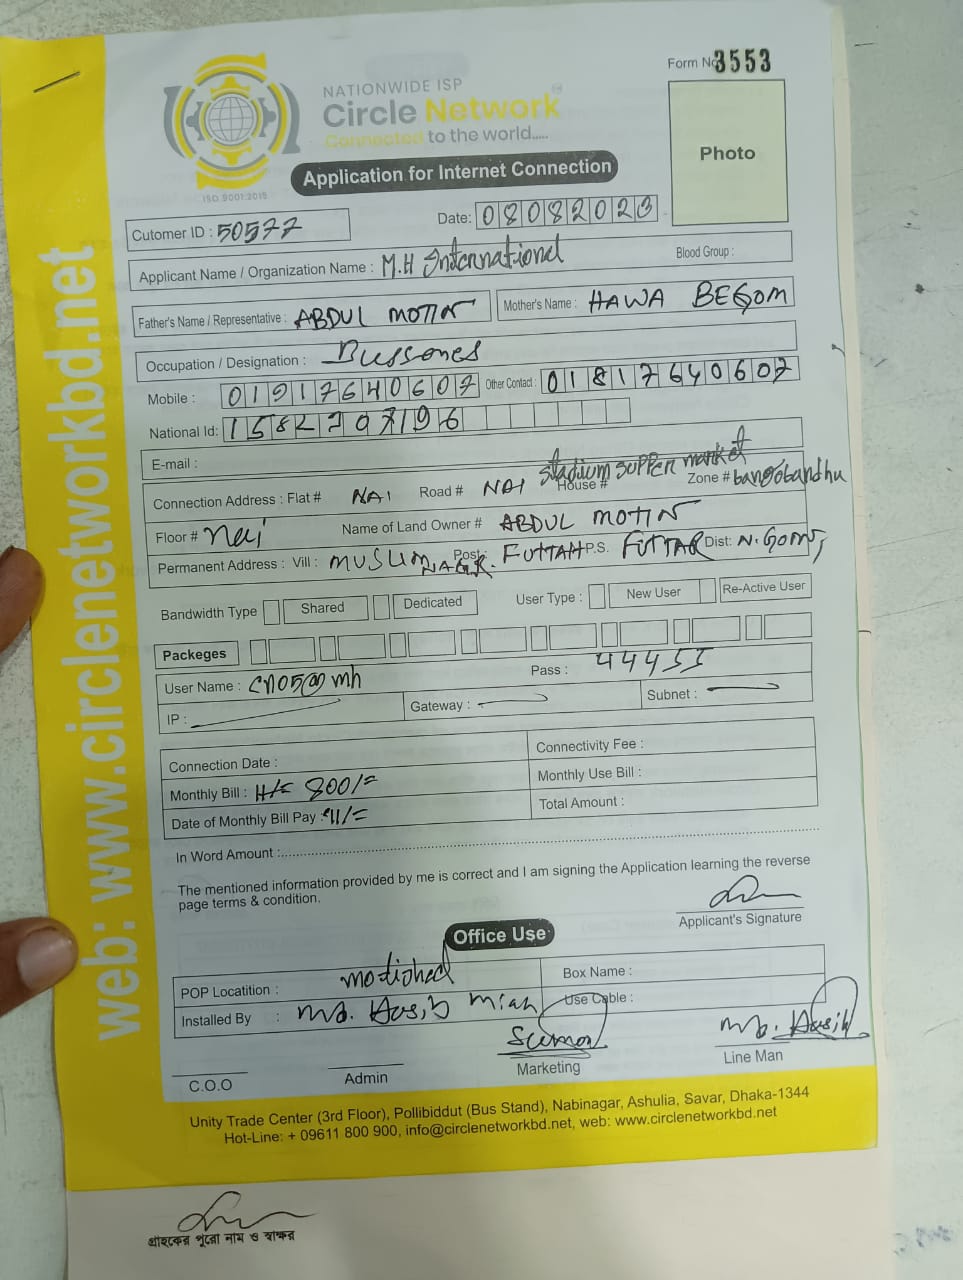 Form No 3553
NATIONWIDE ISP
Circle Network
Connected to the world.....
ISO 9001:2015
Application for Internet Connection
Photo
Cutomer ID : 50577
Date: 08082023
Applicant Name / Organization Name : M.H International Blood Group :
Father's Name / Representative : ABDUL MOTIN Mother's Name : HAWA BEGOM
Occupation / Designation : Bussones
Mobile : 01917640607 Other Contact : 01817640607
National Id:
E-mail :
stadium supper market
Connection Address : Flat # NAI Road # NAI House # Zone # bangobandhu
Floor # nai Name of Land Owner # ABDUL MOTIN
Permanent Address : Vill : MUSLIM NAGR. Post: FUTTAH P.S. FUTTAR Dist:
Bandwidth Type Shared Dedicated User Type : New User Re-Active User
Packeges
User Name : cn05@mh Pass :
IP : Gateway : Subnet :
Connection Date : Connectivity Fee :
Monthly Bill : 800/= Monthly Use Bill :
Date of Monthly Bill Pay : Total Amount :
In Word Amount :
The mentioned information provided by me is correct and I am signing the Application learning the reverse
page terms & condition.
Applicant's Signature
Office Use
POP Locatition : Box Name :
Installed By : Md. Hasib Miah Use Cable :
Sumon Md. Hasib
C.O.O Admin Marketing Line Man
Unity Trade Center (3rd Floor), Pollibiddut (Bus Stand), Nabinagar, Ashulia, Savar, Dhaka-1344
Hot-Line: + 09611 800 900, info@circlenetworkbd.net, web: www.circlenetworkbd.net
গ্রাহকের পুরো নাম ও স্বাক্ষর
web: www.circlenetworkbd.net